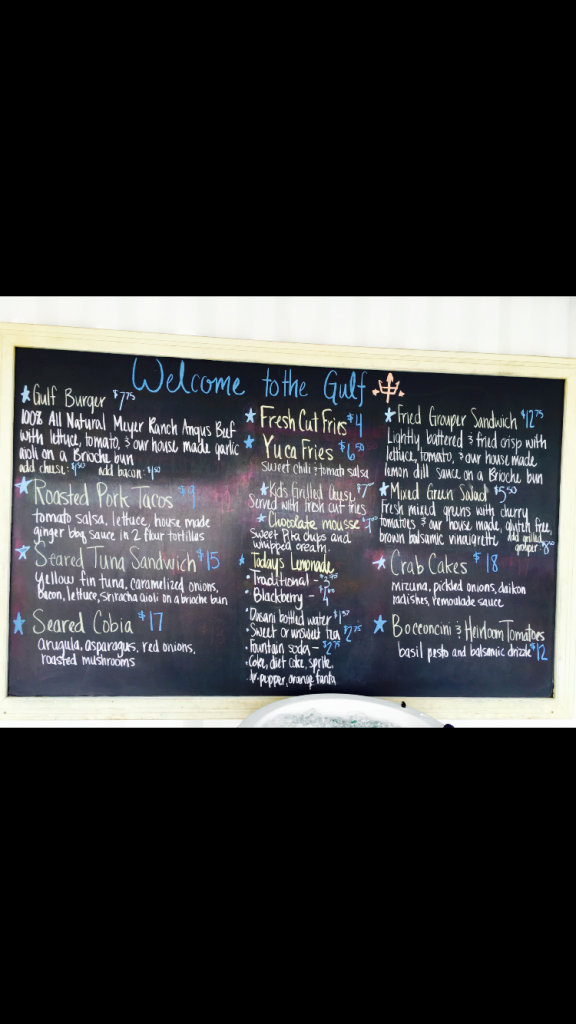 Welcome to the Gulf
Gulf Burger $7.75
100% All Natural Meyer Ranch Angus Beef
with lettuce, tomato, & our house made garlic
aioli on a Brioche bun
add cheese: $1.50 add bacon: $1.50
Roasted Pork Tacos $9
tomato salsa, lettuce, house made
ginger bbq sauce in 2 flour tortillas
Seared Tuna Sandwich $15
yellow fin tuna, caramelized onions,
bacon, lettuce, sriracha aioli on a brioche bun
Seared Cobia $17
arugula, asparagus, red onions,
roasted mushrooms
Fresh Cut Fries $4
Yuca Fries $6.50
sweet chili & tomato salsa
Kids Grilled Cheese $7
Served with fresh cut fries
Chocolate mousse
Sweet Pita chips and
whipped cream
Today's Lemonade
Traditional -
Blackberry -
Dasani bottled water
Sweet or unsweet tea $2.75
Fountain soda - $2.75
Coke, diet coke, sprite,
dr. pepper, orange fanta
Fried Grouper Sandwich $12.75
Lightly battered & fried crisp with
lettuce, tomato, & our house made
lemon dill sauce on a Brioche bun
Mixed Green Salad $5.50
Fresh mixed greens with cherry
tomatoes & our house made, gluten free,
brown balsamic vinaigrette add grilled
grouper:
Crab Cakes $18
mizuna, pickled onions, daikon
radishes, remoulade sauce
Bocconcini & Heirloom Tomatoes
basil pesto and balsamic drizzle $12